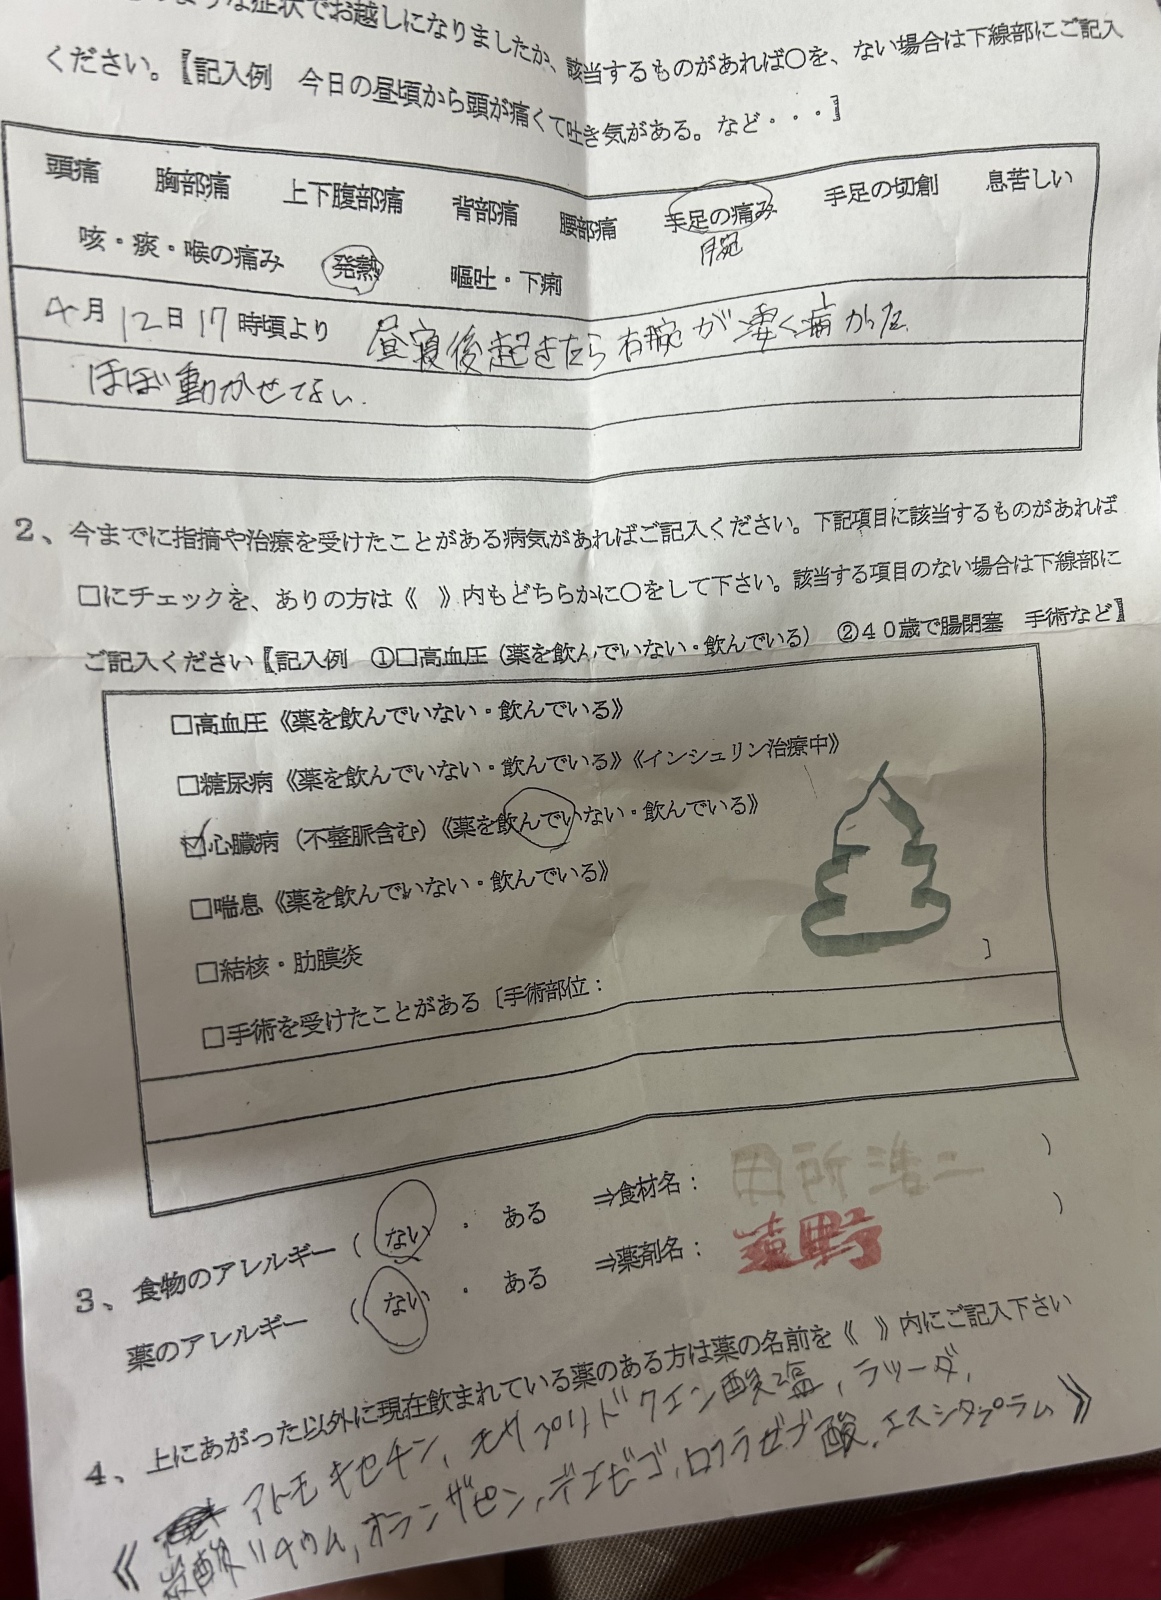 のような症状でお越しになりましたか、該当するものがあれば〇を、ない場合は下線部にご記入
ください。【記入例　今日の昼頃から頭が痛くて吐き気がある。など・・・】
頭痛　胸部痛　上下腹部痛　背部痛　腰部痛　手足の痛み　手足の切創　息苦しい
腕
咳・痰・喉の痛み　発熱　嘔吐・下痢
4月12日17時頃より　昼寝後起きたら右腕が凄く痛かった.
ほぼ動かせてない.
2、今までに指摘や治療を受けたことがある病気があればご記入ください。下記項目に該当するものがあれば
□にチェックを、ありの方は《　》内もどちらかに〇をして下さい。該当する項目のない場合は下線部に
ご記入ください【記入例　①□高血圧（薬を飲んでいない・飲んでいる）　②40歳で腸閉塞　手術など】
□高血圧《薬を飲んでいない・飲んでいる》
□糖尿病《薬を飲んでいない・飲んでいる》《インシュリン治療中》
☑心臓病（不整脈含む）《薬を飲んでいない・飲んでいる》
□喘息《薬を飲んでいない・飲んでいる》
□結核・肋膜炎
□手術を受けたことがある〔手術部位：　〕
3、食物のアレルギー（ない・ある　⇒食材名：田所浩二）
薬のアレルギー（ない・ある　⇒薬剤名：遠野）
4、上にあがった以外に現在飲まれている薬のある方は薬の名前を《　》内にご記入下さい
《アトモキセチン, モサプリドクエン酸塩, ラツーダ,
炭酸リチウム, オランザピン, デエビゴ, ロフラゼプ酸, エスシタロプラム》